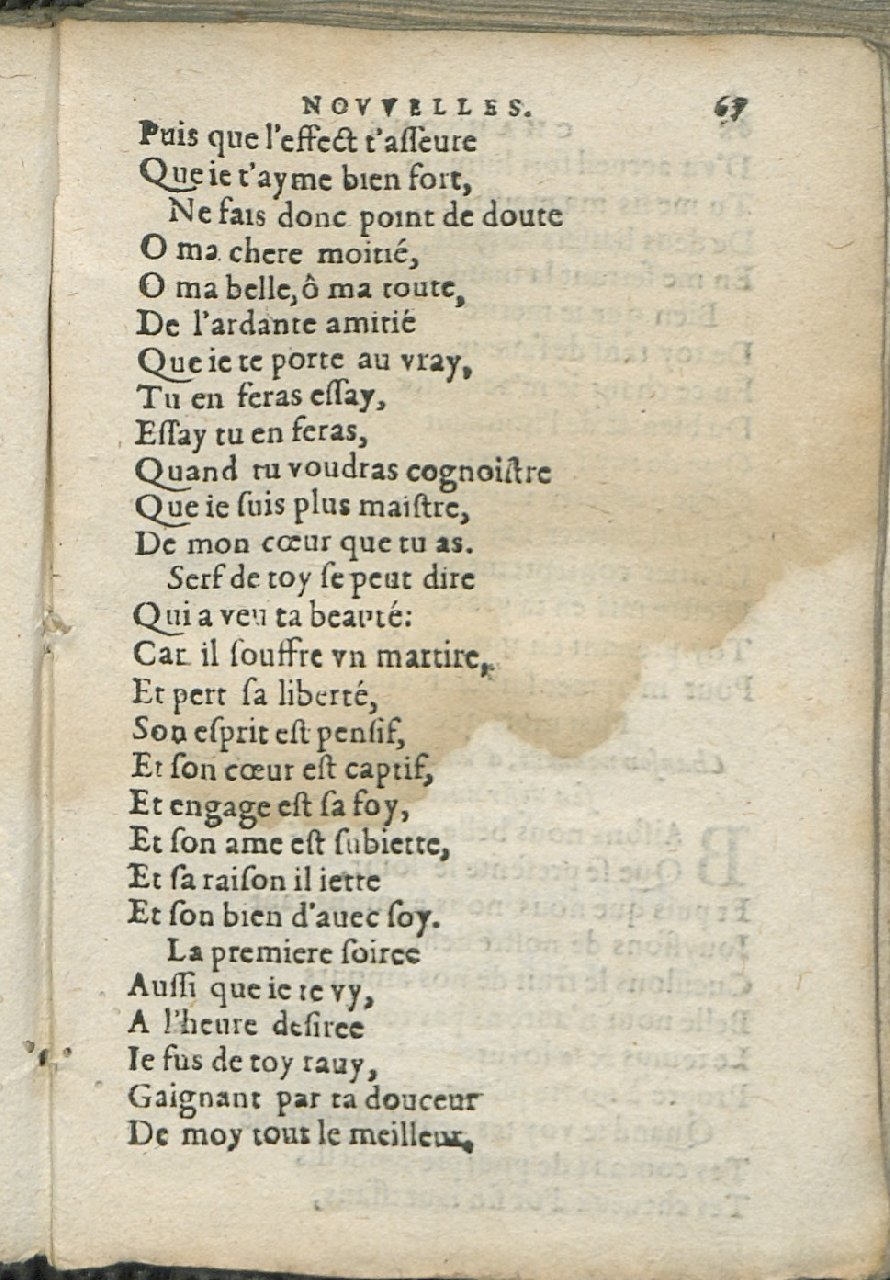 NOVVELLES. 67
Puis que l'effect t'aſſeure
Que ie t'ayme bien fort,
Ne fais donc point de doute
O ma chere moitié,
O ma belle, ô ma toute,
De l'ardante amitié
Que ie te porte au vray,
Tu en feras eſſay,
Eſſay tu en feras,
Quand tu voudras cognoiſtre
Que ie ſuis plus maiſtre,
De mon cœur que tu as.
Serf de toy ſe peut dire
Qui a veu ta beauté:
Car il ſouffre vn martire,
Et pert ſa liberté,
Son eſprit eſt penſif,
Et ſon cœur eſt captif,
Et engage eſt ſa foy,
Et ſon ame eſt ſubiette,
Et ſa raiſon il iette
Et ſon bien d'auec ſoy.
La premiere ſoiree
Auſſi que ie te vy,
A l'heure deſiree
Ie fus de toy rauy,
Gaignant par ta douceur
De moy tout le meilleur,